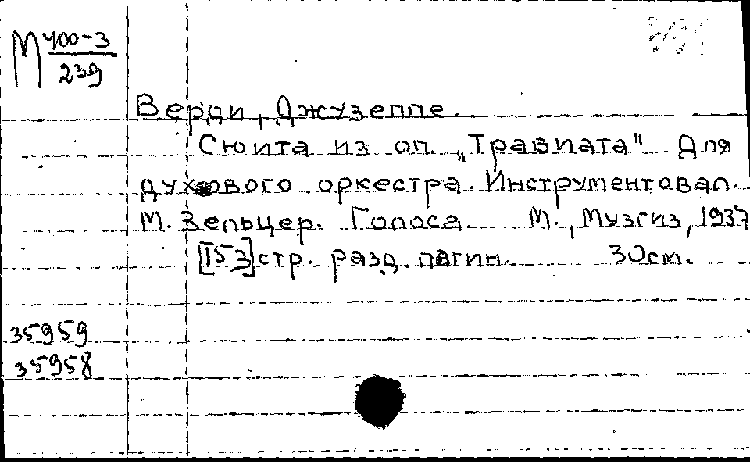 М 400-3
239
Верди, Джузеппе.
Сюита из оп. „Травиата" Для
духового оркестра. Инструментовал.
М. Зельцер. Голоса М., Музгиз, 1937
[153] стр. разд. пагин. 30см.
35959
35958